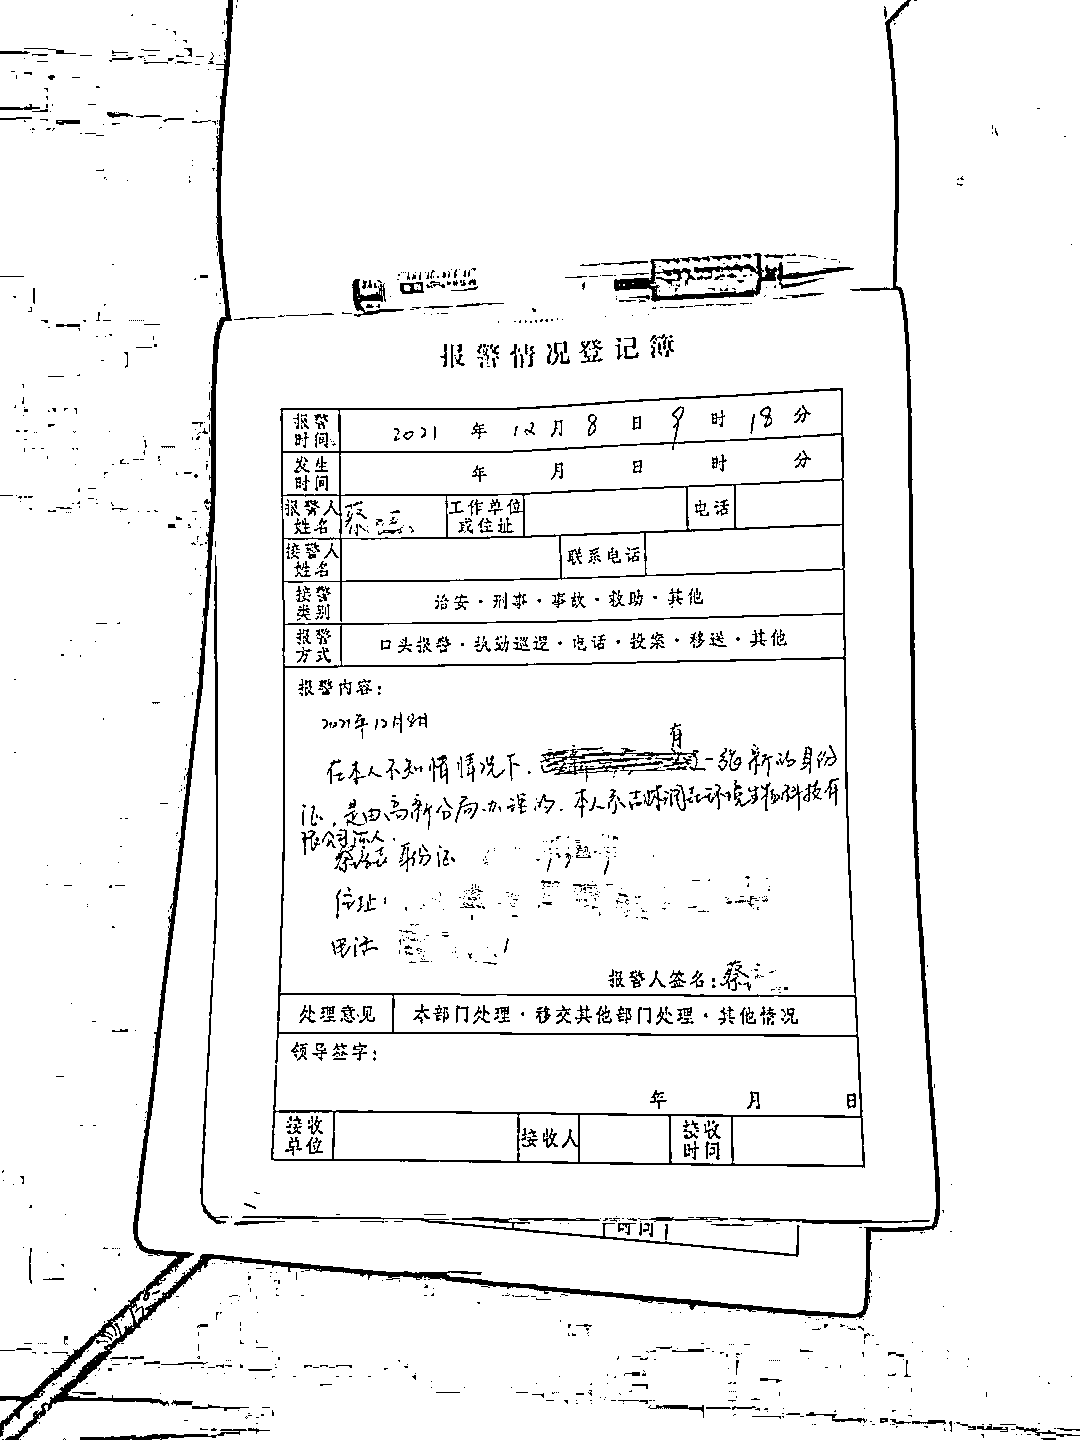 报警情况登记簿
报警时间 2021 年 12 月 8 日 9 时 18 分
发生时间 年 月 日 时 分
报警人姓名 蔡 工作单位或住址 电话
接警人姓名 联系电话
接警类别 治安·刑事·事故·救助·其他
报警方式 口头报警·执勤巡逻·电话·投案·移送·其他
报警内容:
2021年12月8日
有
在本人不知情情况下, 一张新的身份
证,是由高新分局办理的,本人系吉林润 环境生物科技有
限公司法人.
蔡 身份证
住址:
电话
报警人签名: 蔡
处理意见 本部门处理·移交其他部门处理·其他情况
领导签字:
年 月 日
接收单位 接收人 接收时间
时间